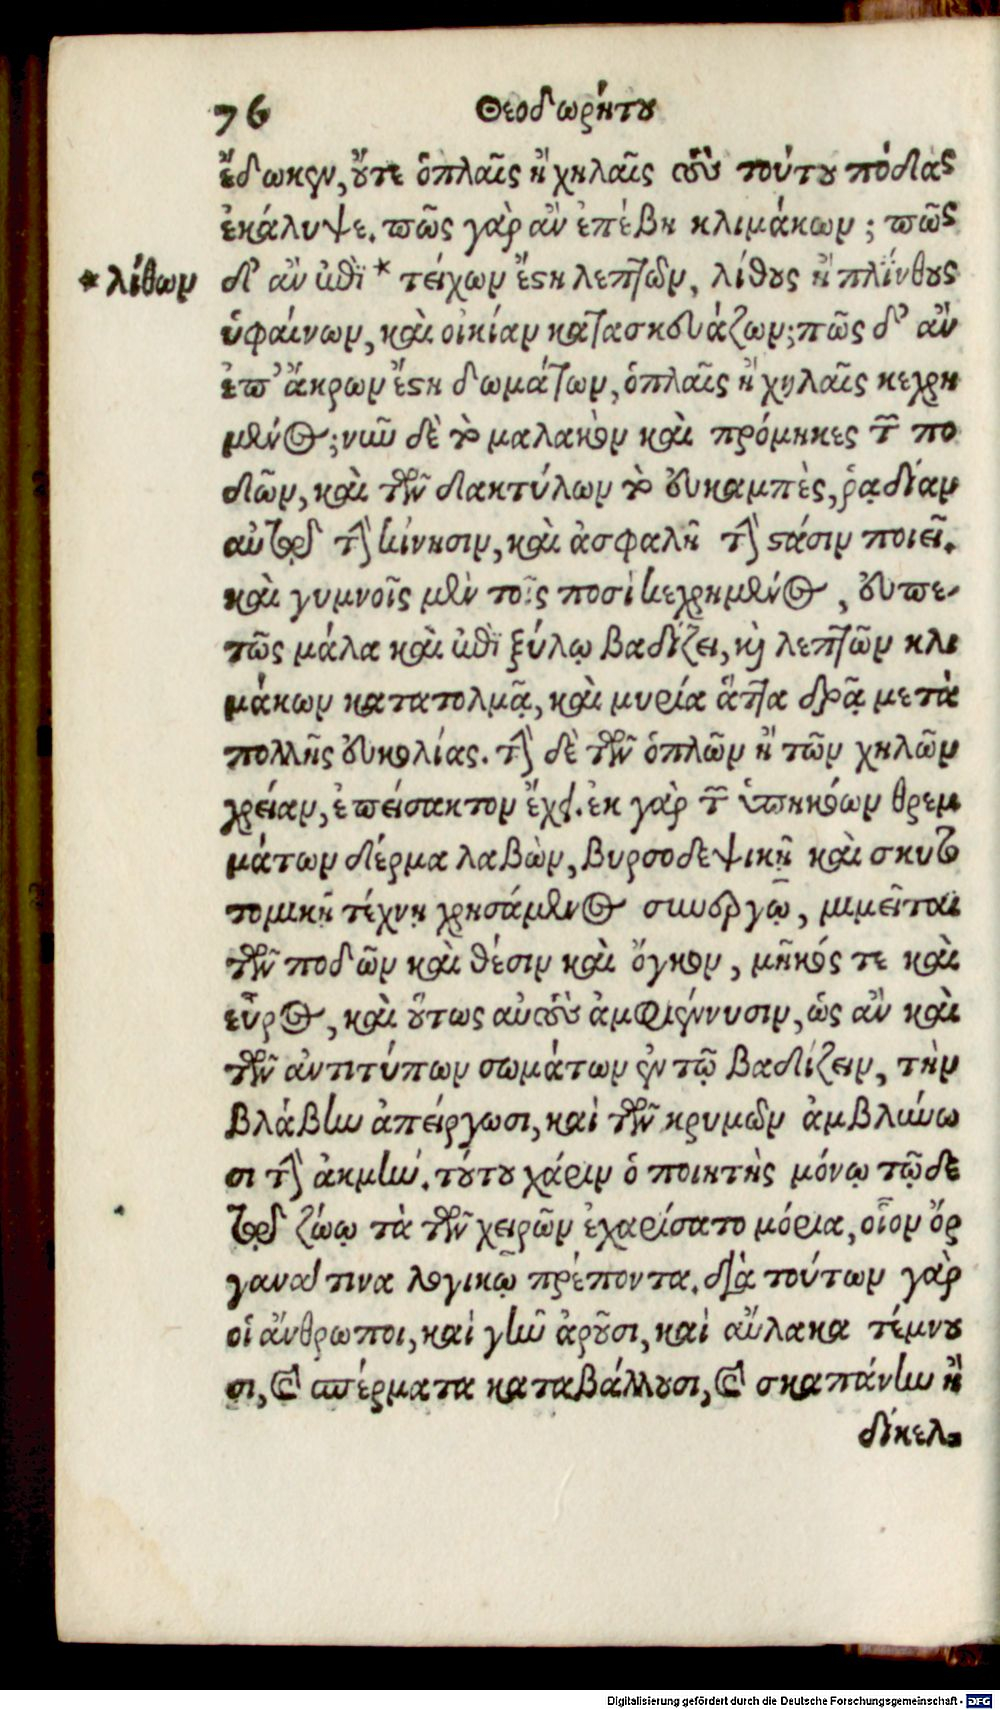 76 Θεοδωρήτου
ἔδωκεν, οὔτε ὁπλαῖς ἢ χηλαῖς τοὺς τούτου πόδας
ἐκάλυψε. πῶς γὰρ ἂν ἐπέβη κλιμάκων; πῶς
* λίθων
δ' ἂν ἐπὶ * τείχων ἔστη λεπτῶν, λίθους ἢ πλίνθους
ὑφαίνων, καὶ οἰκίαν κατασκευάζων; πῶς δ' ἂν
ἐπ' ἄκρων ἔστη δωμάτων, ὁπλαῖς ἢ χηλαῖς κεχρη
μένος; νῦν δὲ τὸ μαλακὸν καὶ πρόμηκες τῶν πο
δῶν, καὶ τῶν δακτύλων τὸ εὐκαμπὲς, ῥᾳδίαν
αὐτῷ τὴν κίνησιν, καὶ ἀσφαλῆ τὴν στάσιν ποιεῖ.
καὶ γυμνοῖς μὲν τοῖς ποσὶ κεχρημένος, εὐπε-
τῶς μάλα καὶ ἐπὶ ξύλῳ βαδίζει, καὶ λεπτῶν κλι
μάκων κατατολμᾷ, καὶ μυρία ἄττα δρᾷ μετὰ
πολλῆς εὐκολίας. τὴν δὲ τῶν ὁπλῶν ἢ τῶν χηλῶν
χρείαν, ἐπείσακτον ἔχει. ἐκ γὰρ τῶν ὑπηκόων θρεμ
μάτων δέρμα λαβὼν, βυρσοδεψικῇ καὶ σκυτο
τομικῇ τέχνῃ χρησάμενος συνεργῷ, μιμεῖται
τῶν ποδῶν καὶ θέσιν καὶ ὄγκον, μῆκός τε καὶ
εὖρος, καὶ οὕτως αὐτοὺς ἀμφιέννυσιν, ὡς ἂν καὶ
τῶν ἀντιτύπων σωμάτων ἐν τῷ βαδίζειν, τὴν
βλάβην ἀπείργωσι, καὶ τῶν κρυμῶν ἀμβλύνω
σι τὴν ἀκμήν. τούτου χάριν ὁ ποιητὴς μόνῳ τῷδε
τῷ ζώῳ τὰ τῶν χειρῶν ἐχαρίσατο μόρια, οἷον ὄρ
γανα τινα λογικῷ πρέποντα. διὰ τούτων γὰρ
οἱ ἄνθρωποι, καὶ γῆν ἀροῦσι, καὶ αὔλακα τέμνου
σι, καὶ σπέρματα καταβάλλουσι, καὶ σκαπάνην ἢ
δίκελ-
Digitalisierung gefördert durch die Deutsche Forschungsgemeinschaft - DFG